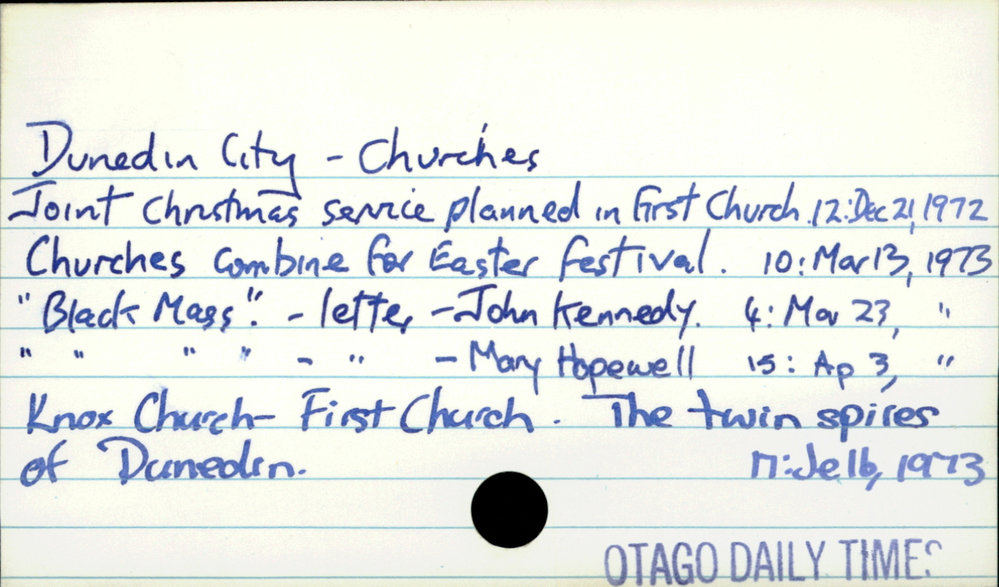 Dunedin City - Churches
Joint Christmas service planned in First Church. 12: Dec 21, 1972
Churches combine for Easter festival. 10: Mar 13, 1973
"Black Mass". - letter - John Kennedy. 4: Mar 23, "
" " " " - " - Mary Hopewell 15: Ap 3, "
Knox Church - First Church. The twin spires
of Dunedin. 17: Je 16, 1973
OTAGO DAILY TIMES